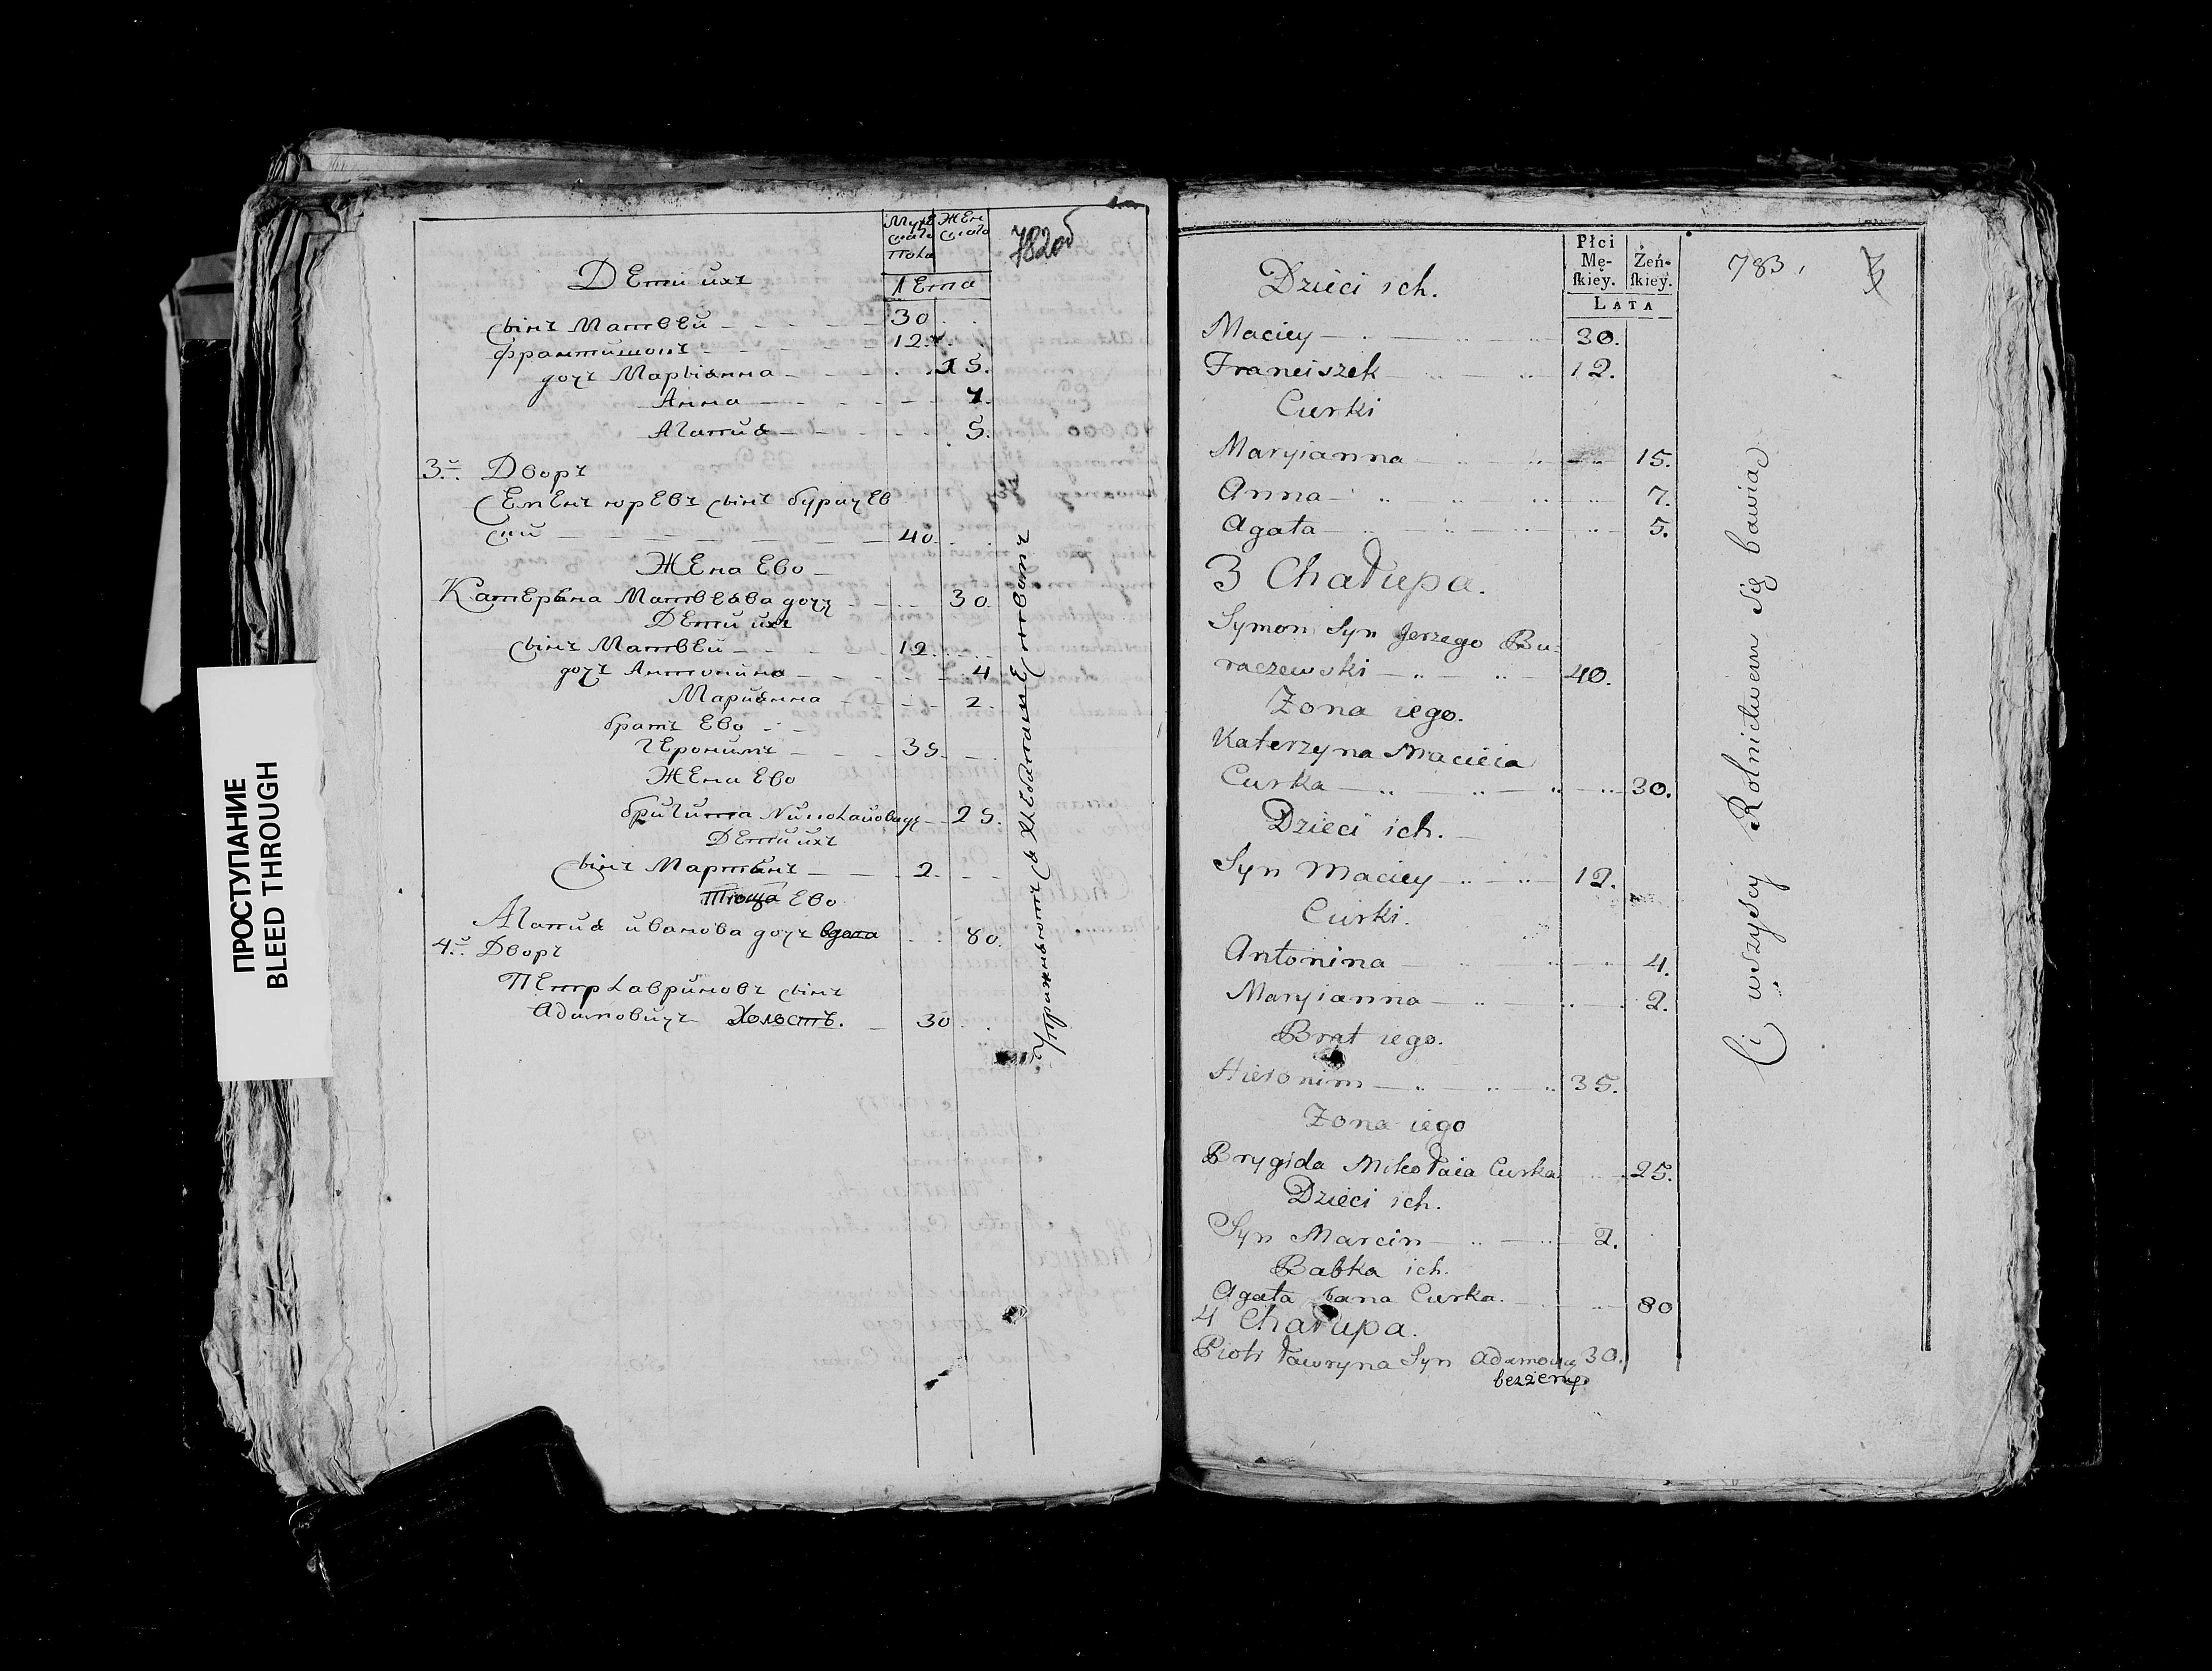 ПРОСТУПАНИЕ
BLEED THROUGH
782об
Мужс
каго
пола
Жен
скаго
Лета
Дети ихъ
сынъ Матвей 30
францишокъ 12.
дочъ Марыанна 15.
Анна 7.
Агапиа 5.
3.й Дворъ
Семенъ юревъ сынъ бурачев
ский 40.
Жена Ево
Катерына Матвеава дочъ 30.
Дети ихъ
сынъ Матвей 12.
дочъ Антонина 4
Марианна 2.
братъ Ево
Геронимъ 35.
Жена Ево
бригита Николаиова дч 25.
Дети ихъ
сынъ Мартынъ 2.
Тюща Ево
Агапиа иванова дочъ вдова 80.
4.й Дворъ
Петр Лавриновъ сынъ
Адамовичъ Холостъ. 30
783.
Płci
Mę-
ſkiey.
Żeń-
ſkiey.
LATA
Dzieci ich.
Maciey 30.
Franciszek 12.
Curki
Maryianna 15.
Anna 7.
Agata 5.
3 Chałupa.
Symon Syn Jerzego Bu-
raczewski 40.
Zona iego.
Katerzyna Macieia
Curka 30.
Dzieci ich.
Syn Maciey 12.
Curki.
Antonina 4.
Maryianna 2.
Brat iego.
Hieronim 35.
Zona iego
Brygida Mikołaia Curka 25.
Dzieci ich.
Syn Marcin 2.
Babka ich.
Agata Jana Curka. 80
4 Chałupa.
Piotr Ławryna Syn Adamowicz 30.
bezżeny.
Ci wszyscy Rolnictwem się bawiąc